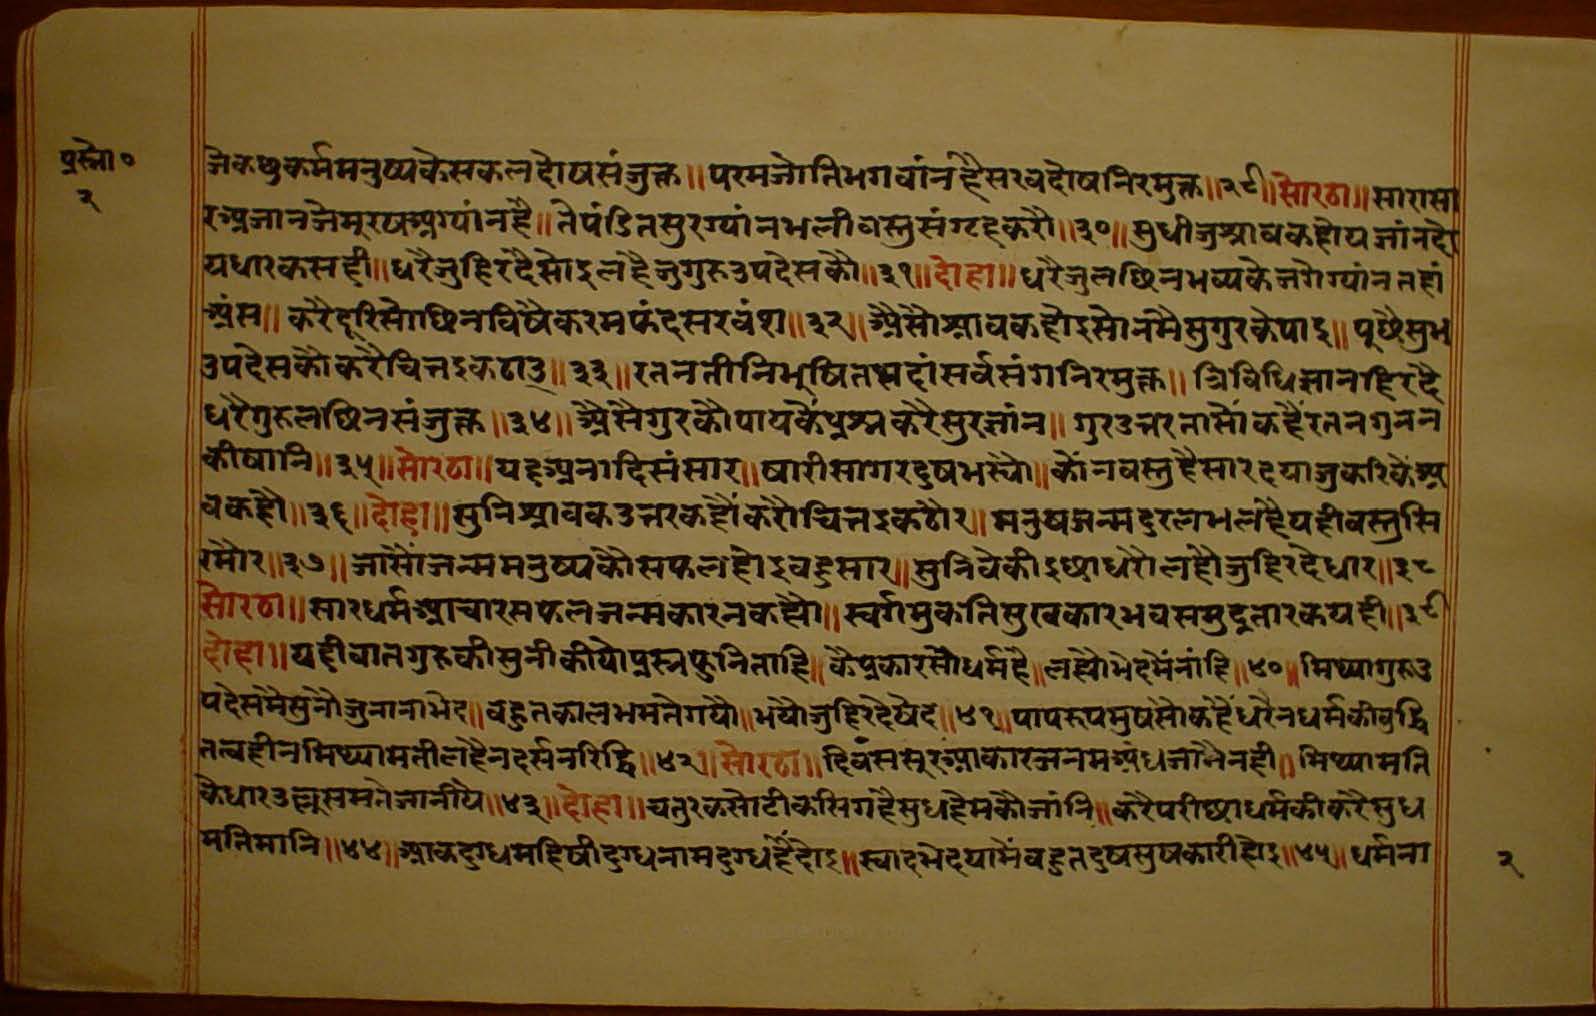 प्रस्नो०
२
जेकछुकर्ममनुष्यकेसकलदोषसंजुक्त॥परमजोतिभगवांनहैसरवदोषनिरमुक्त॥२९॥सोरठा॥सारासा
रअजानजेमूरषअग्यांनहै॥तेपंडितसुरग्यांनभलीवस्तुसंग्रहकरौ॥३०॥सुधीजुश्रावकहोयजांनहो
यधारकसही॥धरैजुहिरदैसोइलहैजुगुरूउपदेसकौ॥३१॥दोहा॥धरैजुलछिनभव्यकेजगेग्यांनतहां
अंस॥करैदूरिसोछिनविषैकरमफंदसरवंश॥३२॥अैसौश्रावकहोइसोनमैसुगुरकेपाइ॥पूछैसुभ
उपदेसकौकरैचित्तइकठाउ॥३३॥रतनतीनिभूषिततहांसर्वसंगनिरमुक्त॥त्रिविधिज्ञानहिरदै
धरैगुरूलछिनसंजुक्त॥३४॥अैसैगुरकौपायकैंप्रश्नकरैसुरज्ञांन॥गुरउत्तरतासौंकहैंरतनगुनन
कीषानि॥३५॥सोरठा॥यहअनादिसंसार॥षारीसागरदुषभस्यौ॥कोंनवस्तुहैसारदयाजुकरिकैंअ
वकहौ॥३६॥दोहा॥सुनिश्रावकउत्तरकहौंकरौचित्तइकठौर॥मनुषजन्मदुरलभलहैयहीवस्तुसि
रमौर॥३७॥जासौंजन्ममनुष्यकौसफलहोइवहुसार॥सुनिवेकीइछाधरौलहौजुहिरदैधार॥३८
सोरठा॥सारधर्मआचारसफलजन्मकारनकह्यौ॥स्वर्गमुकतिसुखकारभवसमुद्रतारकयही॥३९
दोहा॥यहीवातगुरूकीसुनीकीयोप्रस्नफुनिताहि॥कैप्रकारसोधर्महै॥लह्यौभेदमेंनांहि॥४०॥मिथ्यागुरूउ
पदेसमैसुनौजुनानाभेद॥वहुतकालभमतेगयौ॥भयौजुहिरदैषेद॥४१॥पापरूपमुषसोकहैंधरैनधर्मकीवुद्धि
तत्वहीनमिथ्यामतीलहैनदर्सनरिद्धि॥४२॥सोरठा॥दिवससुरआकारजनमअंधजानैनही॥मिथ्यामति
कैधारउल्लूसमतेजानीयै॥४३॥दोहा॥चतुरकसोटीकसिगहैसुधहेमकौजांनि॥करैपरीछाधर्मकीकरैसुध
मतिमानि॥४४॥आकदुग्धमहिषीदुग्धनामदुग्धहैंदोइ॥स्वादभेदयामेंवहुतदुषसुषकारीहोइ॥४५॥धर्मना
२